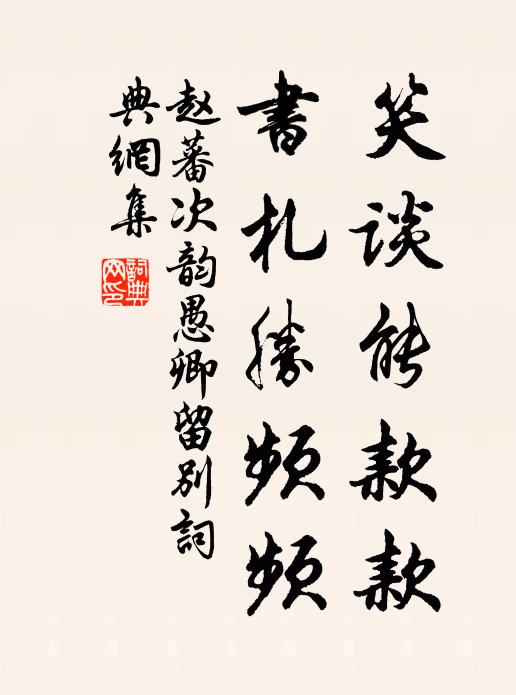 笑谈能款款
書札勝頻頻
赵蕃次韵愚卿留别詞
典網集
詞典网印